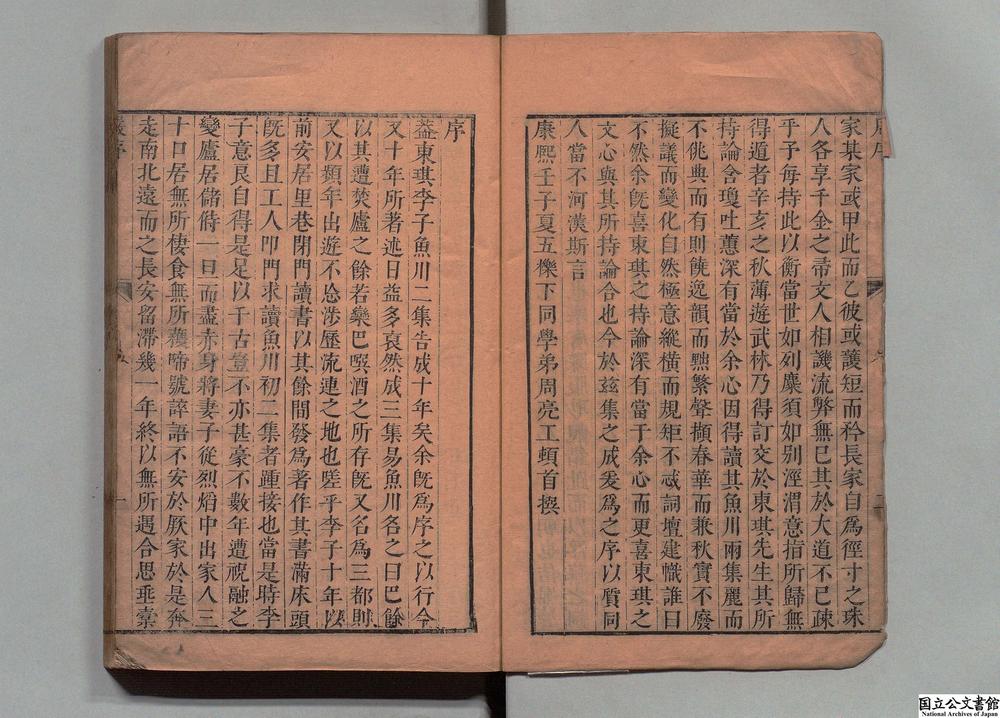 家某家或甲此而乙彼或護短而矜長家自爲徑寸之珠
人各享千金之帚文人相譏流弊無已其於大道不已疎
乎予每持此以衡當世如列麋須如别涇渭意指所歸無
得道者辛亥之秋薄遊武林乃得訂交於東琪先生其所
持論含瓊吐蕙深有當於余心因得讀其魚川兩集麗而
不佻典而有則饒逸韻而黜繁聲擷春華而兼秋實不廢
擬議而變化自然極意縱橫而規矩不忒詞壇建幟誰曰
不然余旣喜東琪之持論深有當于余心而更喜東琪之
文心與其所持論合也今於兹集之成爰爲之序以質同
人當不河漢斯言
康熙壬子夏五櫟下同學弟周亮工頓首撰
序
葢東琪李子魚川二集告成十年矣余旣爲序之以行今
又十年所著述日益多裒然成三集易魚川名之曰巴餘
以其遭焚廬之餘若欒巴噀酒之所存旣又名爲三都則
又以頻年出遊不忘涉歷流連之地也嗟乎李子十年以
前安居里巷閉門讀書以其餘間發爲著作其書滿床頭
旣多且工人叩門求讀魚川初二集者踵接也當是時李
子意良自得是足以千古豈不亦甚豪不數年遭祝融之
變廬居儲偫一旦而盡赤身將妻子從烈熖中出家人三
十口居無所棲食無所穫啼號誶語不安於厥家於是奔
走南北遠而之長安留滯幾一年終以無所遇合思垂橐
序
一
国立公文書館
National Archives of Japan